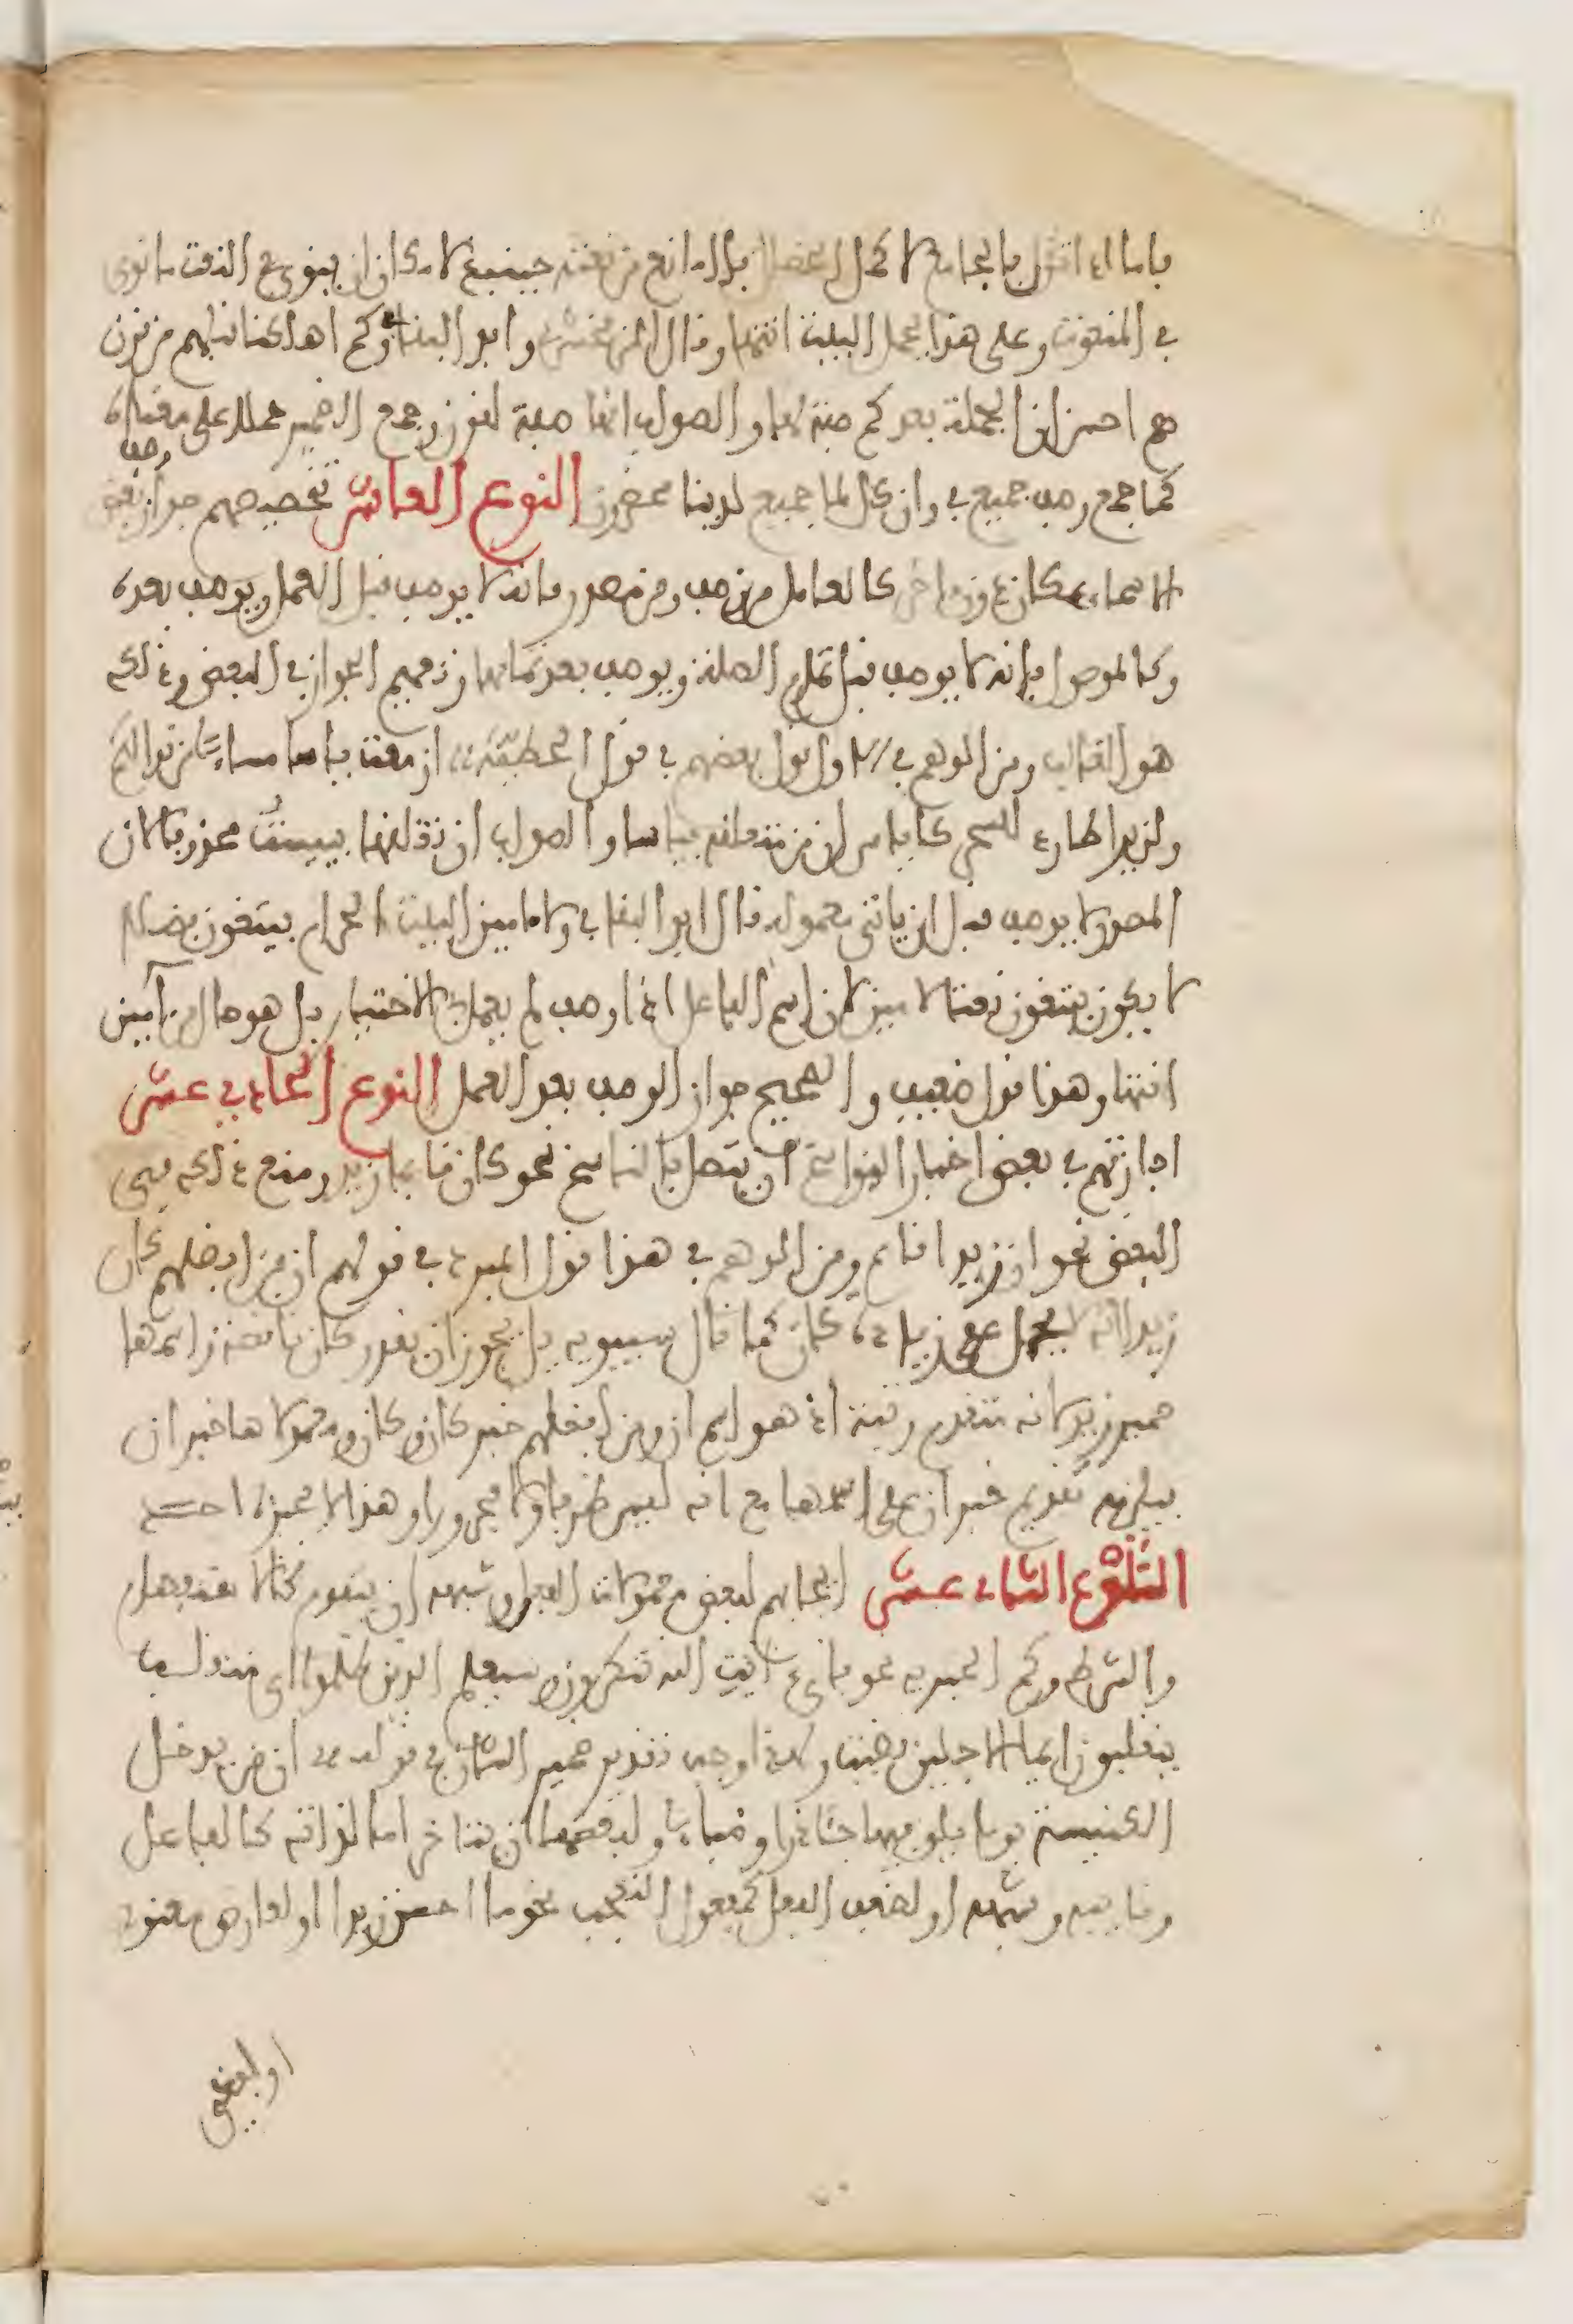 فاما اذا اقترن بالجامع لا كحل العضل فلا مانع من نعته حينيذ لامكان ان ينوى في النعت ما نوى
في المنعوت وعلى هذا يحمل البيت انتهى وقال الزمخشري وابو البقا في وكم اهلكنا قبلهم من قرن
هم احسن ان الجملة بعد كم صفة لها والصواب انها صفة لقرن وجمع الضمير حملا على معناه
كما جمع وصف جميع في وان كل لما جميع لدينا محضرون النوع العاشر تخصيصهم جواز وصف بعض
الاسماء بمكان دون اخر كالعامل من وصف ومن مصدر فانه لا يوصف قبل العمل ويوصف بعده
وكالموصول فانه لا يوصف قبل تمام الصلة ويوصف بعد تمامها وتعميم الجواز في البعض وذلك
هو الغالب ومن الوهم في الاول قول بعضهم في قول الحطيئة ازمعت ياسا مبينا من نوالكم
ولن يرا طاردا للحر كالياس ان من متعلقه بياسا والصواب ان تعلقها بييست محذوفا لان
المصدر لا يوصف قبل ان ياتي معموله قال ابو البقا في ولا امين البيت الحرام يبتغون فضلا
لا يكون يبتغون نعتا لامين لان اسم الفاعل اذا وصف لم يعمل في الاختيار بل هو حال من امين
انتهى وهذا قول ضعيف والصحيح جواز الوصف بعد العمل النوع الحادي عشر
اجازتهم في بعض اخبار النواسخ ان يتصل بالناسخ نحو كان قايما زيد ومنع ذلك في
البعض نحو ان زيدا قايم ومن الوهم في هذا قول المبرد في قولهم ان من افضلهم كان
زيدا انه لا يحمل على زيادة كان كما قال سيبويه بل يجوز ان تقدر كان ناقصة واسمها
ضمير زيد لانه متقدم رتبة اذ هو اسم ان ومن افضلهم خبر كان وكان ومعمولاها خبر ان
فيلزمه تقديم خبر ان على اسمها مع انه ليس ظرفا ولا مجرورا وهذا لا يجيزه احد
النوع الثاني عشر ايجابهم لبعض معمولات الفعل وشبهه ان يتقدم كالاستفهام
والشرط وكم الخبرية نحو فاي ايات الله تنكرون وسيعلم الذين ظلموا اي منقلب
ينقلبون ايما الاجلين قضيت ولهذا وجب تقدير ضمير الشان في قوله ان من يدخل
الكنيسة يوما يلق فيها جئاذرا وظباء ولبعضها ان يتاخر اما لذاته كالفاعل
ونايبه وشبهه او لضعف الفعل كمفعول التعجب نحو ما احسن زيدا او لعارض معنوي
او لفظي